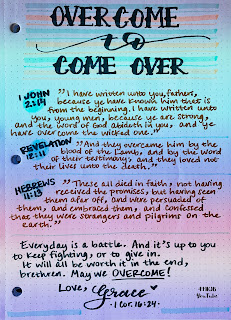 OVERCOME
to
COME OVER
1 JOHN 2:14
"I have written unto you, fathers,
because ye have known him that is
from the beginning. I have written unto
you, young men, because ye are strong,
and the word of God abideth in you, and ye
have overcome the wicked one."
REVELATION 12:11
"And they overcame him by the
blood of the Lamb, and by the word
of their testimony; and they loved not
their lives unto the death."
HEBREWS 11:13
"These all died in faith, not having
received the promises, but having seen
them afar off, and were persuaded of
them, and embraced them, and confessed
that they were strangers and pilgrims on the
earth."
Everyday is a battle. And it's up to you
to keep fighting, or to give in.
It will all be worth it in the end,
brethren. May we OVERCOME!
Love,
Grace
-1 Cor. 16:24-
YouTube